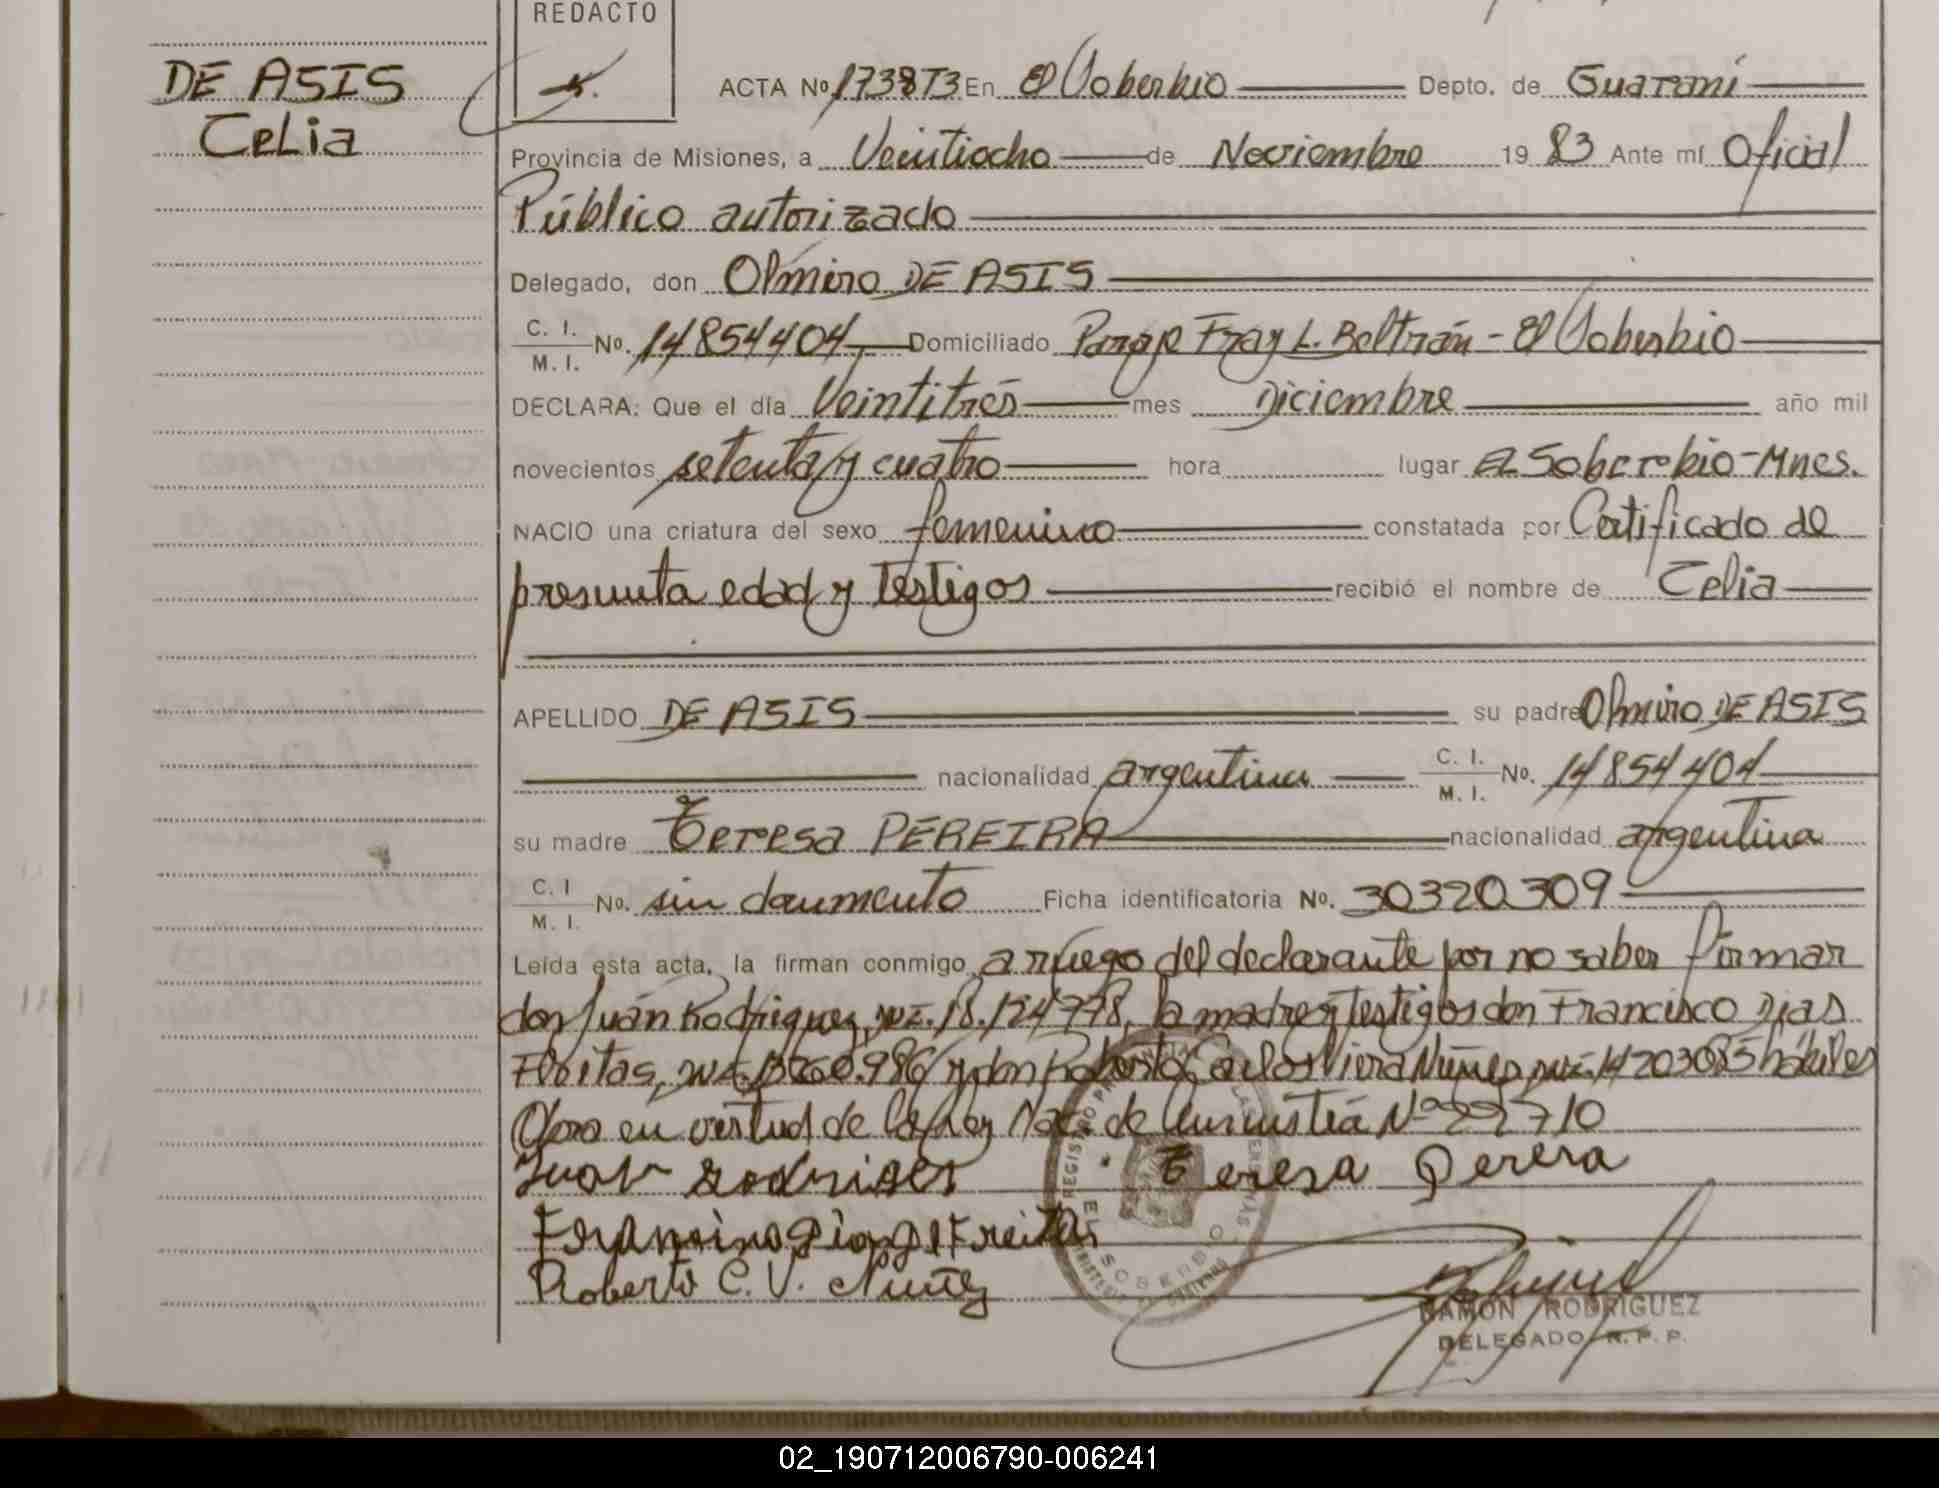 REDACTO
DE ASIS
Celia
ACTA Nº 173873 En El Soberbio Depto. de Guaraní
Provincia de Misiones, a Veintiocho de Noviembre 19 83 Ante mí Oficial
Público autorizado
Delegado, don Olmiro DE ASIS
C. I.
M. I. No. 14854404 Domiciliado Paraje Fray L. Beltrán - El Soberbio
DECLARA: Que el día Veintitrés mes Diciembre año mil
novecientos setenta y cuatro hora lugar El Soberbio-Mnes.
NACIO una criatura del sexo femenino constatada por Certificado de
presunta edad y testigos recibió el nombre de Celia
APELLIDO DE ASIS su padre Olmiro DE ASIS
nacionalidad argentina C. I.
M. I. No. 14854404
su madre Teresa PEREIRA nacionalidad argentina
C. I
M. I. No. sin documento Ficha identificatoria No. 30320309
Leída esta acta, la firman conmigo a ruego del declarante por no saber firmar
don Juán Rodriguez, 18.124778, la madre y testigos don Francisco Dias
Freitas, y don Roberto Carlos Viera Nuñes, hábiles
Obra en virtud de la Ley Nac. de Amnistía Nº 22710
Juan Rodrigues Teresa Perera
Freitas
Roberto C. V. Nuñez
REGISTRO
EL SOBERBIO
RAMON RODRIGUEZ
DELEGADO R. P. P.
02_190712006790-006241